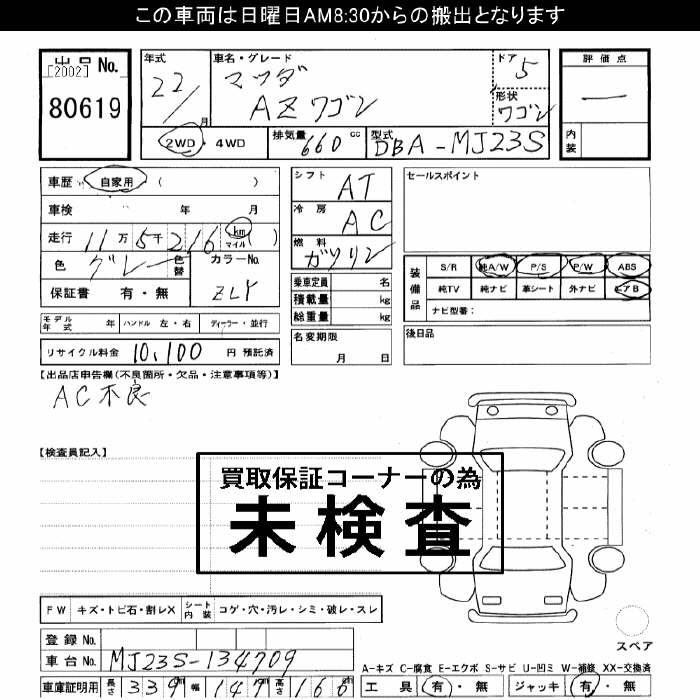 この車両は日曜日AM8:30からの搬出となります
出品No. [2002]
80619
年式 22/ 月
車名・グレード マツダ AZワゴン
ドア 5
形状 ワゴン
評価点 —
内装
2WD・4WD
排気量 660 cc
型式 DBA-MJ23S
車歴 自家用 ( )
車検 年 月
走行 11万5千216 km マイル ( )
色 グレー 色替
カラーNo. ZLY
保証書 有・無
シフト AT
冷房 AC
燃料 ガソリン
乗車定員 名
積載量 kg
総重量 kg
セールスポイント
装備品
S/R 純A/W P/S P/W ABS
純TV 純ナビ 革シート 外ナビ エアB
ナビ型番:
モデル年式 年 ハンドル 左・右 ディーラー・並行
名変期限 月 日
後日品
リサイクル料金 10,100 円 預託済
【出品店申告欄(不良箇所・欠品・注意事項等)】
AC不良
【検査員記入】
買取保証コーナーの為
未検査
FW キズ・トビ石・割レX シート内装 コゲ・穴・汚レ・シミ・破レ・スレ
登録No.
車台No. MJ23S-134709
車庫証明用 長さ 339 cm 幅 147 cm 高さ 166 cm
スペア
A-キズ C-腐食 E-エクボ S-サビ U-凹ミ W-補修 XX-交換済
工具 有・無 ジャッキ 有・無